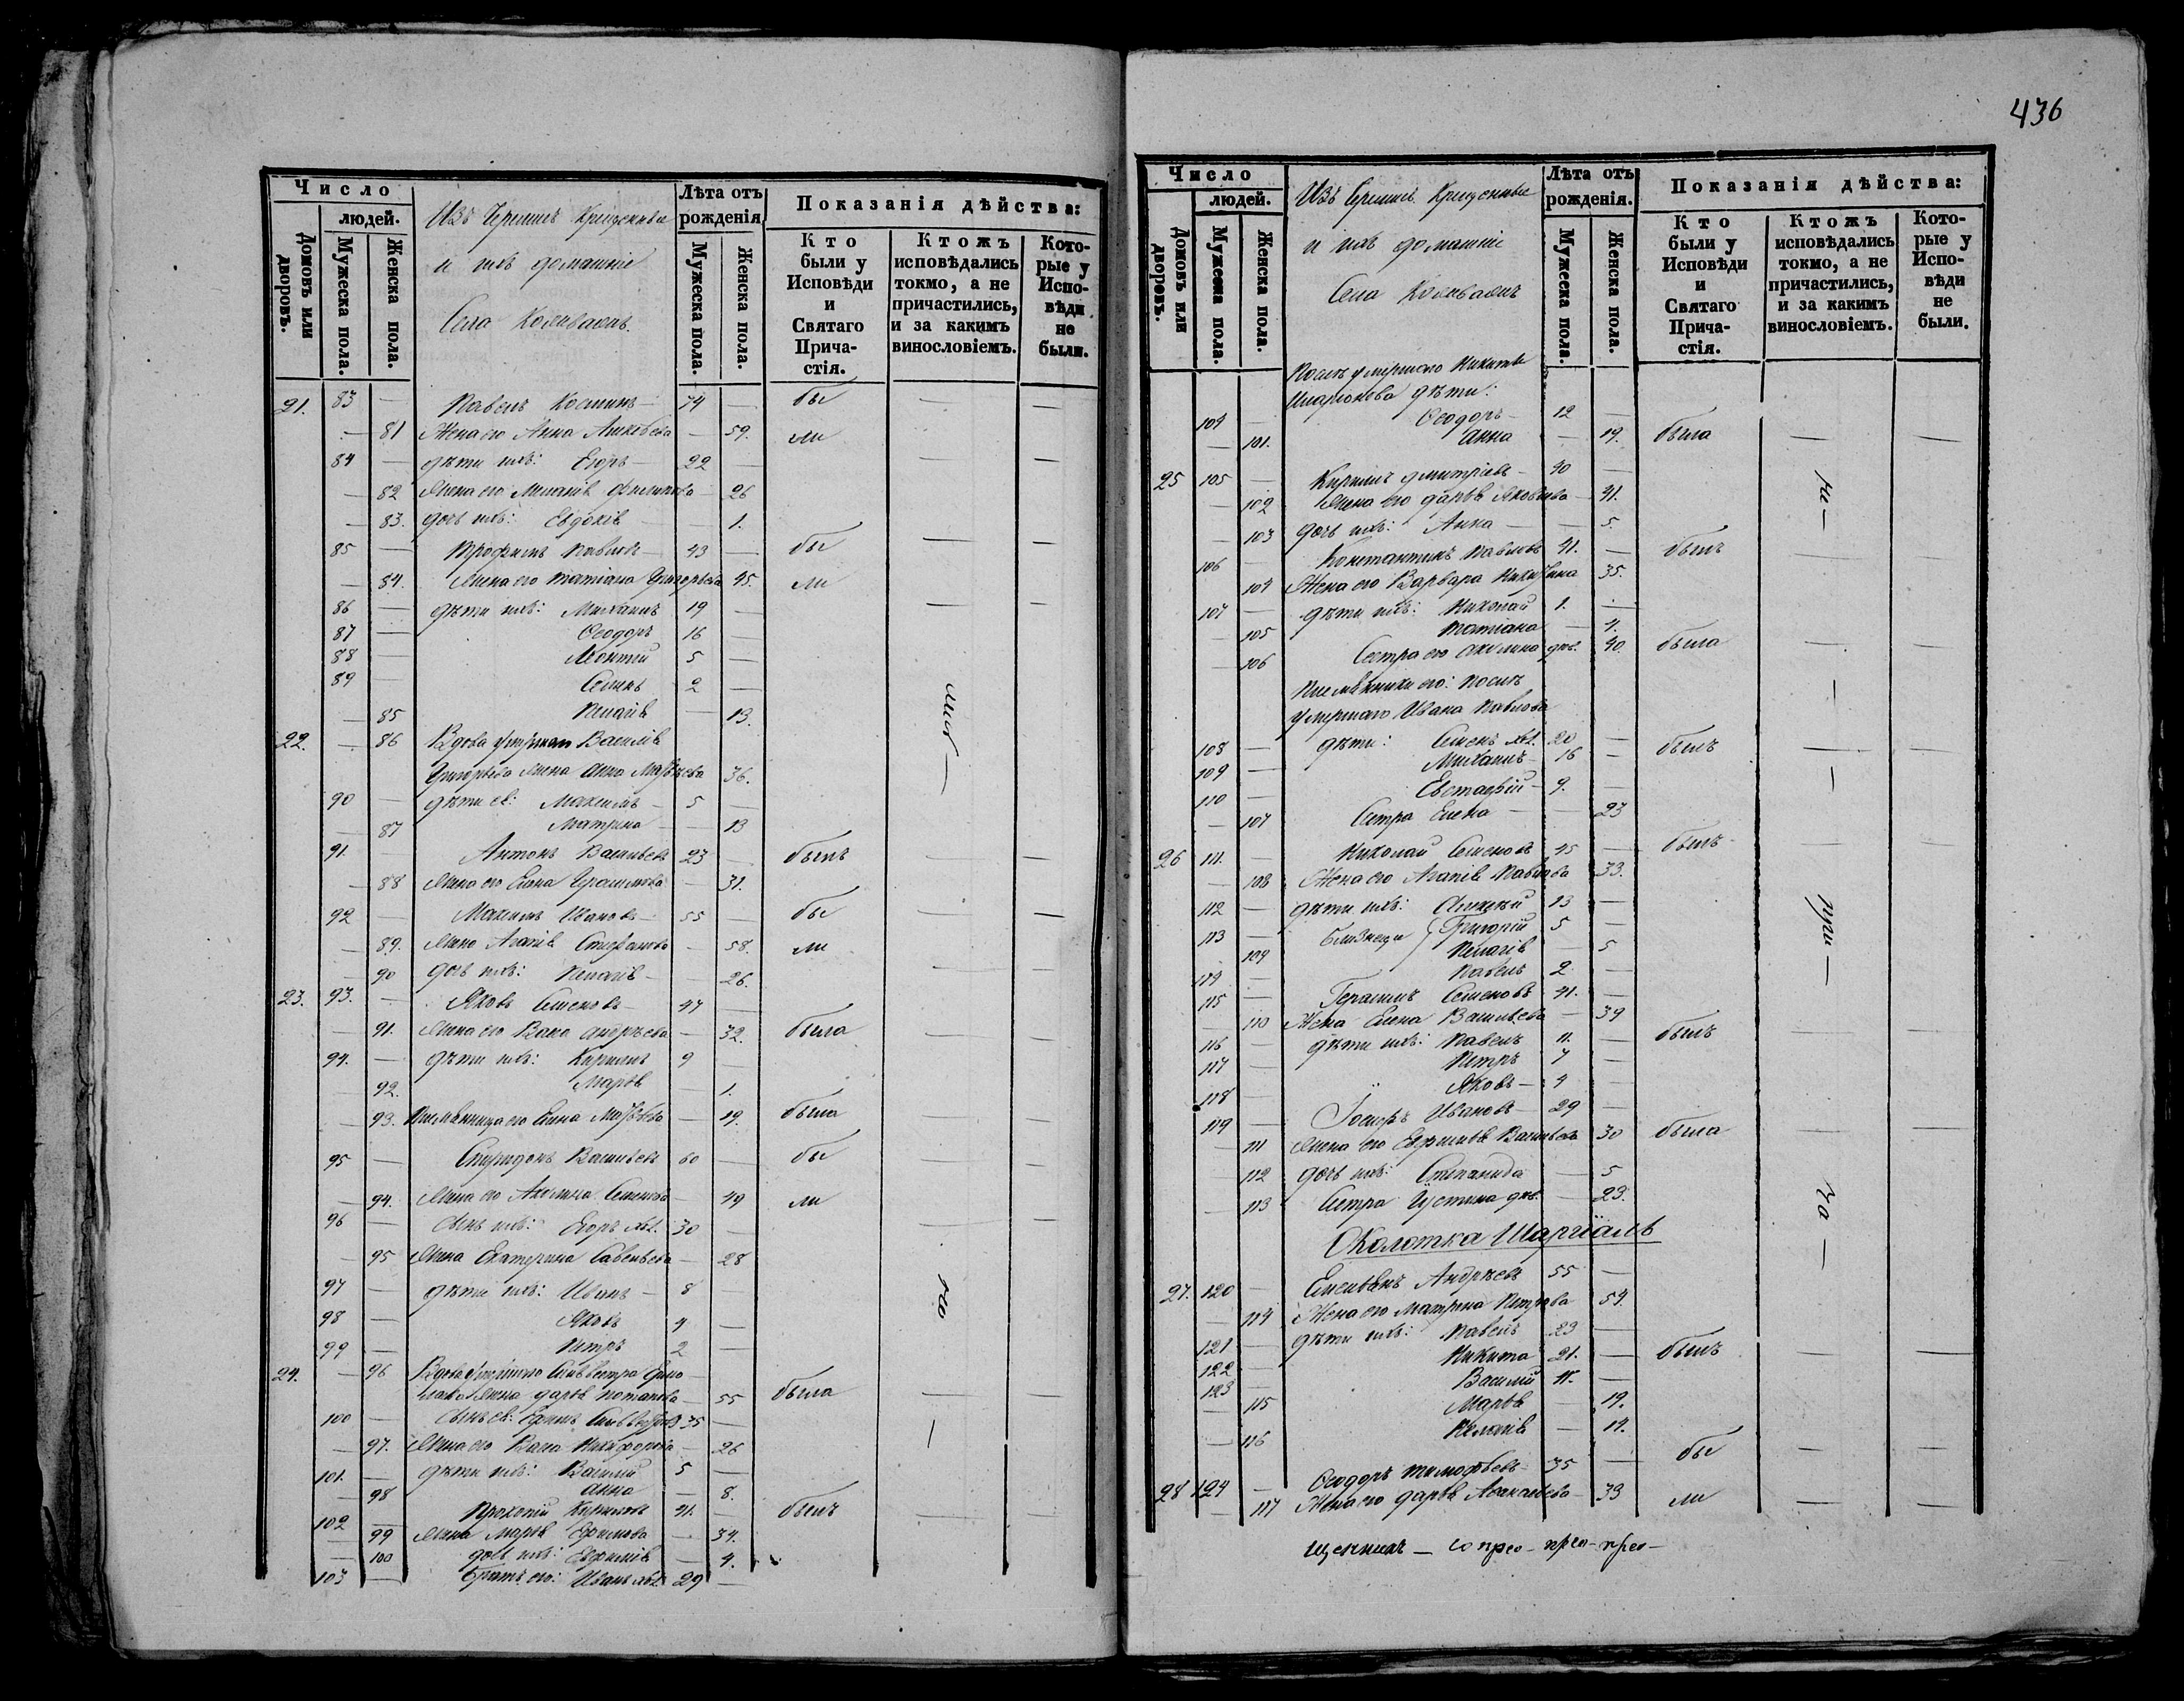 436
Число
людей.
Домовъ или дворовъ.
Мужеска пола.
Женска пола.
Изъ Черемисъ Крещенные
и ихъ домашніе
Села
Лѣта отъ рожденія.
Мужеска пола.
Женска пола.
Показанія дѣйства:
Кто были у Исповѣди и Святаго Прича-стія.
Ктожъ исповѣдались токмо, а не причастились, и за какимъ винословіемъ.
Кото-рые у Испо-вѣди не были.
21. 83 — Павелъ Косминъ — 74 — бы — —
— 81 Жена его Анна — 59. ли
84 — дѣти ихъ: Егоръ — 22 — —
— 82 Жена его Меланія Филипова — 26
— 83. дочь ихъ: Евдокія — 1.
85 — Трофимъ Павловъ — 43 — бы — —
— 84. Жена его Татіана Григорьева 45. ли
86 — дѣти ихъ: Михаилъ 19 — — —
87 — Ѳеодоръ 16 —
88 — Леонтій 5 —
89 — Семенъ 2 —
— 85 Пелагія — 13.
22. — 86 Вдова умершаго Василія
Григорьева жена Анна Матѳѣева 36.
90 — дѣти ея: Максимъ — 5 —
— 87 Матрена — — 13
91. — Антонъ Васильевъ 23 — былъ — —
— 88 Жена его Елена Герасимова — 31.
92 — Максимъ Ивановъ — 55 — бы — —
— 89. Жена Агапія Стефанова — 58. ли
— 90 дочь ихъ: Пелагія — — 26. — —
23. 93. — Яковъ Семеновъ — 47 —
— 91. Жена его Васа Андрѣева — 32. была — —
94. — дѣти ихъ: Кирилъ 9 —
— 92. Марѳа — 1.
— 93. Племянница его Елена Матѳѣева — 19. была — —
95 — Спиридонъ Васильевъ 60 — бы — —
— 94. Жена его Акилина Семенова — 49 ли
96 — сынъ ихъ: Егоръ хол. 30 — — —
— 95 Жена Екатерина Савельева — 28
97 — дѣти ихъ: Иванъ — 8 —
98 — Яковъ 4 —
99 — Петръ 2 —
24. — 96 Вдова умершаго Сильвестра
жена Дарья Потапова — 55 была — —
100 — сынъ ея: Ефимъ Сильвестровъ 35 —
— 97. Жена его Васа Никифорова — 26
101. — дѣти ихъ: Василій 5 —
— 98 Анна — 8.
102 — Прокопій Кириловъ 41. — былъ — —
— 99 Жена Марѳа Ефимова — 34.
— 100 дочь ихъ: Евфимія — 4.
103 — братъ его: Иванъ хол. 29 —
Число
людей.
Домовъ или дворовъ.
Мужеска пола.
Женска пола.
Изъ Черемисъ Крещенные
и ихъ домашніе
Села
Лѣта отъ рожденія.
Мужеска пола.
Женска пола.
Показанія дѣйства:
Кто были у Исповѣди и Святаго Прича-стія.
Ктожъ исповѣдались токмо, а не причастились, и за какимъ винословіемъ.
Кото-рые у Испо-вѣди не были.
Послѣ умершаго Никиты
Иларіонова дѣти:
104 — Ѳеодоръ — 12 —
— 101. Анна — 19. была — —
25 105 — Кирилъ Дмитріевъ — 40 —
— 102 Жена его Дарья Яковлева — 41.
— 103 дочь ихъ: Анна — — 5.
106 — Константинъ Павловъ 41. — былъ —
104 Жена его Варвара Никитина 35.
107 — дѣти ихъ: Николай 1. —
— 105 Татіана — 4.
— 106 Сестра его Акилина дѣв. 40. была — —
Племянники его: послѣ
умершаго Ивана Павлова
108 — дѣти: Семенъ хол. 20 — былъ — —
109 — Михаилъ — 16 —
110 — Евстафій — 9. —
— 107 Сестра Елена — — 23
26 111. — Николай Семеновъ 45 — былъ —
— 108 Жена его Агапія Павлова 33.
112 — дѣти ихъ: Алексѣй 13 —
113 — близнецы Григорій 5 —
109 Пелагія — 5
114 — Павелъ 2 —
115 — Герасимъ Семеновъ 41. —
— 110 Жена Елена Васильева — 39
116 — дѣти ихъ: Павелъ 11. — былъ — —
117 — Петръ 7 —
118 — Яковъ — 4 —
119 — Ивановъ — 29 —
— 111 Жена его Евфимія Васильева 30 была — —
— 112 дочь ихъ: Степанида — 5
— 113 Сестра Іустина дѣв. — 23.
Околотка
27. 120 — Андрѣевъ 55 —
— 114 Жена его Матрена Петрова 54.
121 — дѣти ихъ: Павелъ 23 —
122 — Никита 21. — былъ — —
123 — Василій 11. —
— 115 Марѳа — 19.
— 116 Пелагія — 14.
28 124 — Ѳеодоръ Тимоѳѣевъ — 35 — бы — —
— 117 Жена его Дарья — 33 ли — —